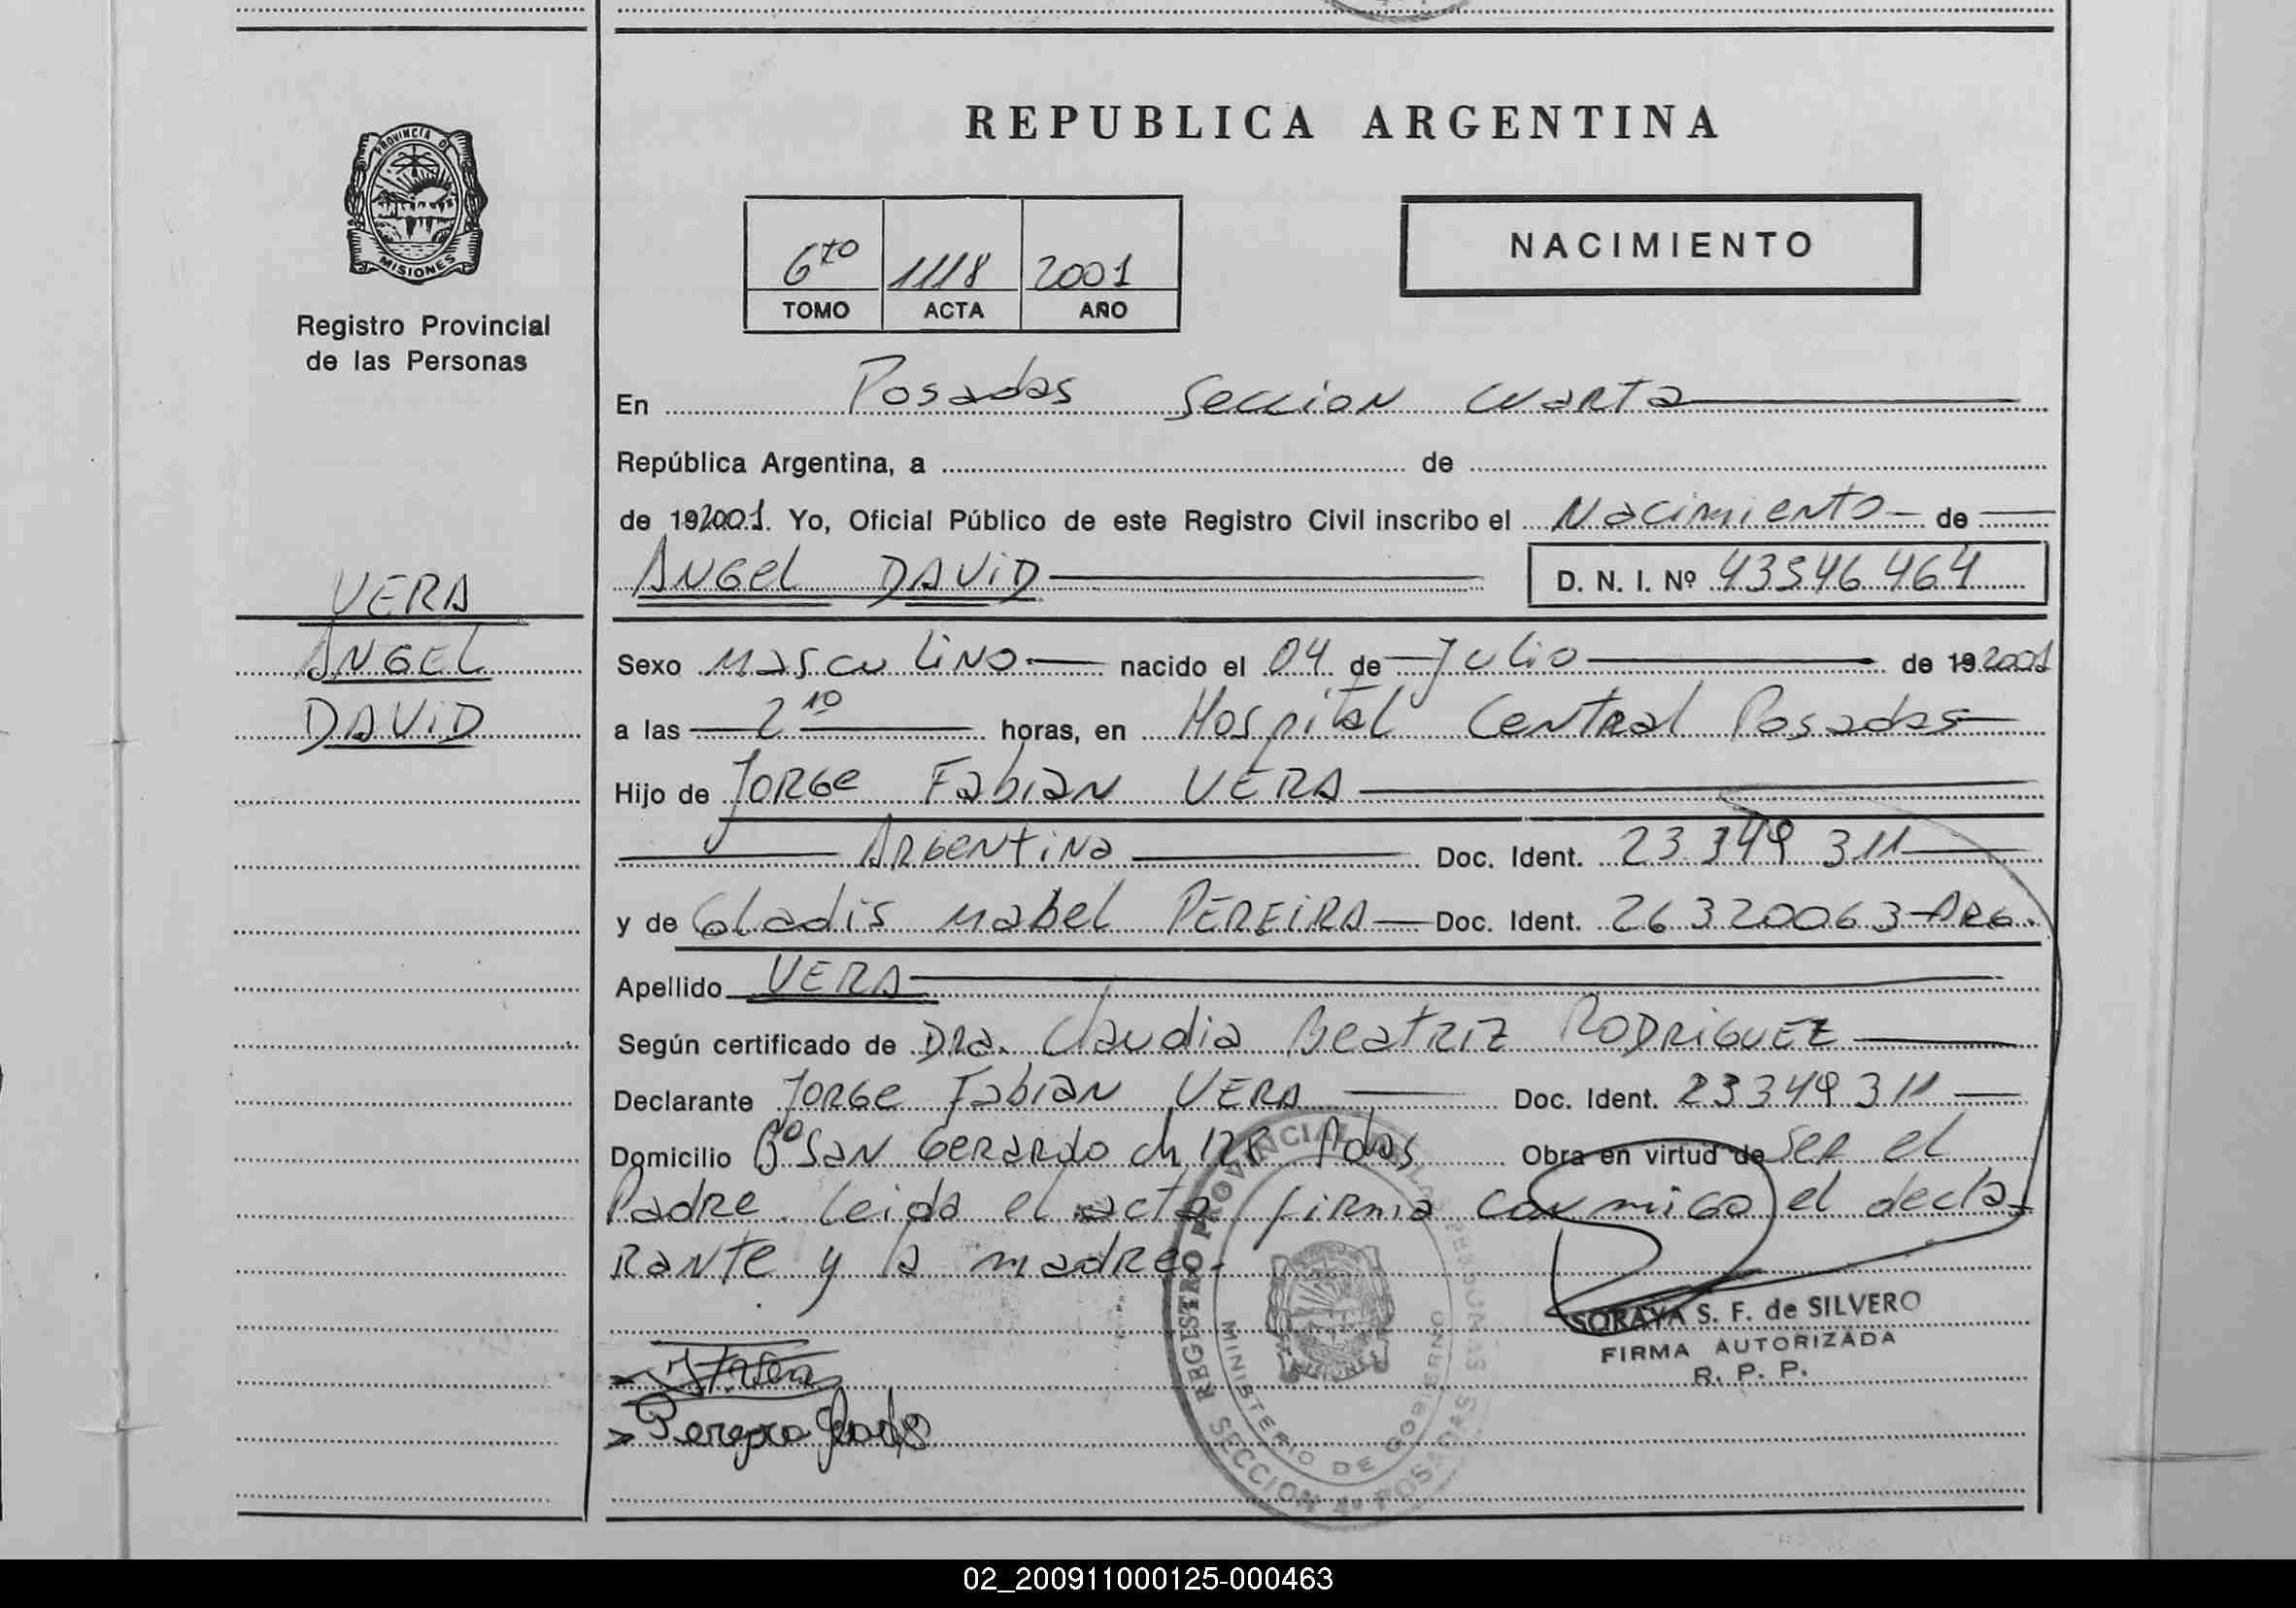 REPUBLICA ARGENTINA
PROVINCIA D
MISIONES
Registro Provincial
de las Personas
6to 1118 2001
TOMO ACTA AÑO
NACIMIENTO
En Posadas Seccion Cuarta
República Argentina, a de
de 192001. Yo, Oficial Público de este Registro Civil inscribo el Nacimiento de
ANGel DAViD D. N. I. Nº 43546464
VERA
ANGEL
DAViD
Sexo Masculino nacido el 04 de Julio de 192001
a las 2 10 horas, en Hospital Central Posadas
Hijo de JORGe FabiaN VERA
ARGENtiNa Doc. Ident. 23 349 311
y de Gladis Mabel PEREiRA Doc. Ident. 26320063 ARG.
Apellido VERA
Según certificado de DRa. Claudia BeatRiZ RODRiGUEZ
Declarante JORGe FabiaN VERA Doc. Ident. 23349311
Domicilio Bº SaN GeRaRdo ch 128 Pdas Obra en virtud de SeR el
PadRe. leida el acta fiRma CoNmiGo el decla-
RaNte y la madRe.-
REGISTRO PROVINCIAL DE LAS PERSONAS
MINISTERIO DE GOBIERNO
SECCION 4ª POSADAS
SORAYA S. F. de SILVERO
FIRMA AUTORIZADA
R. P. P.
02_200911000125-000463